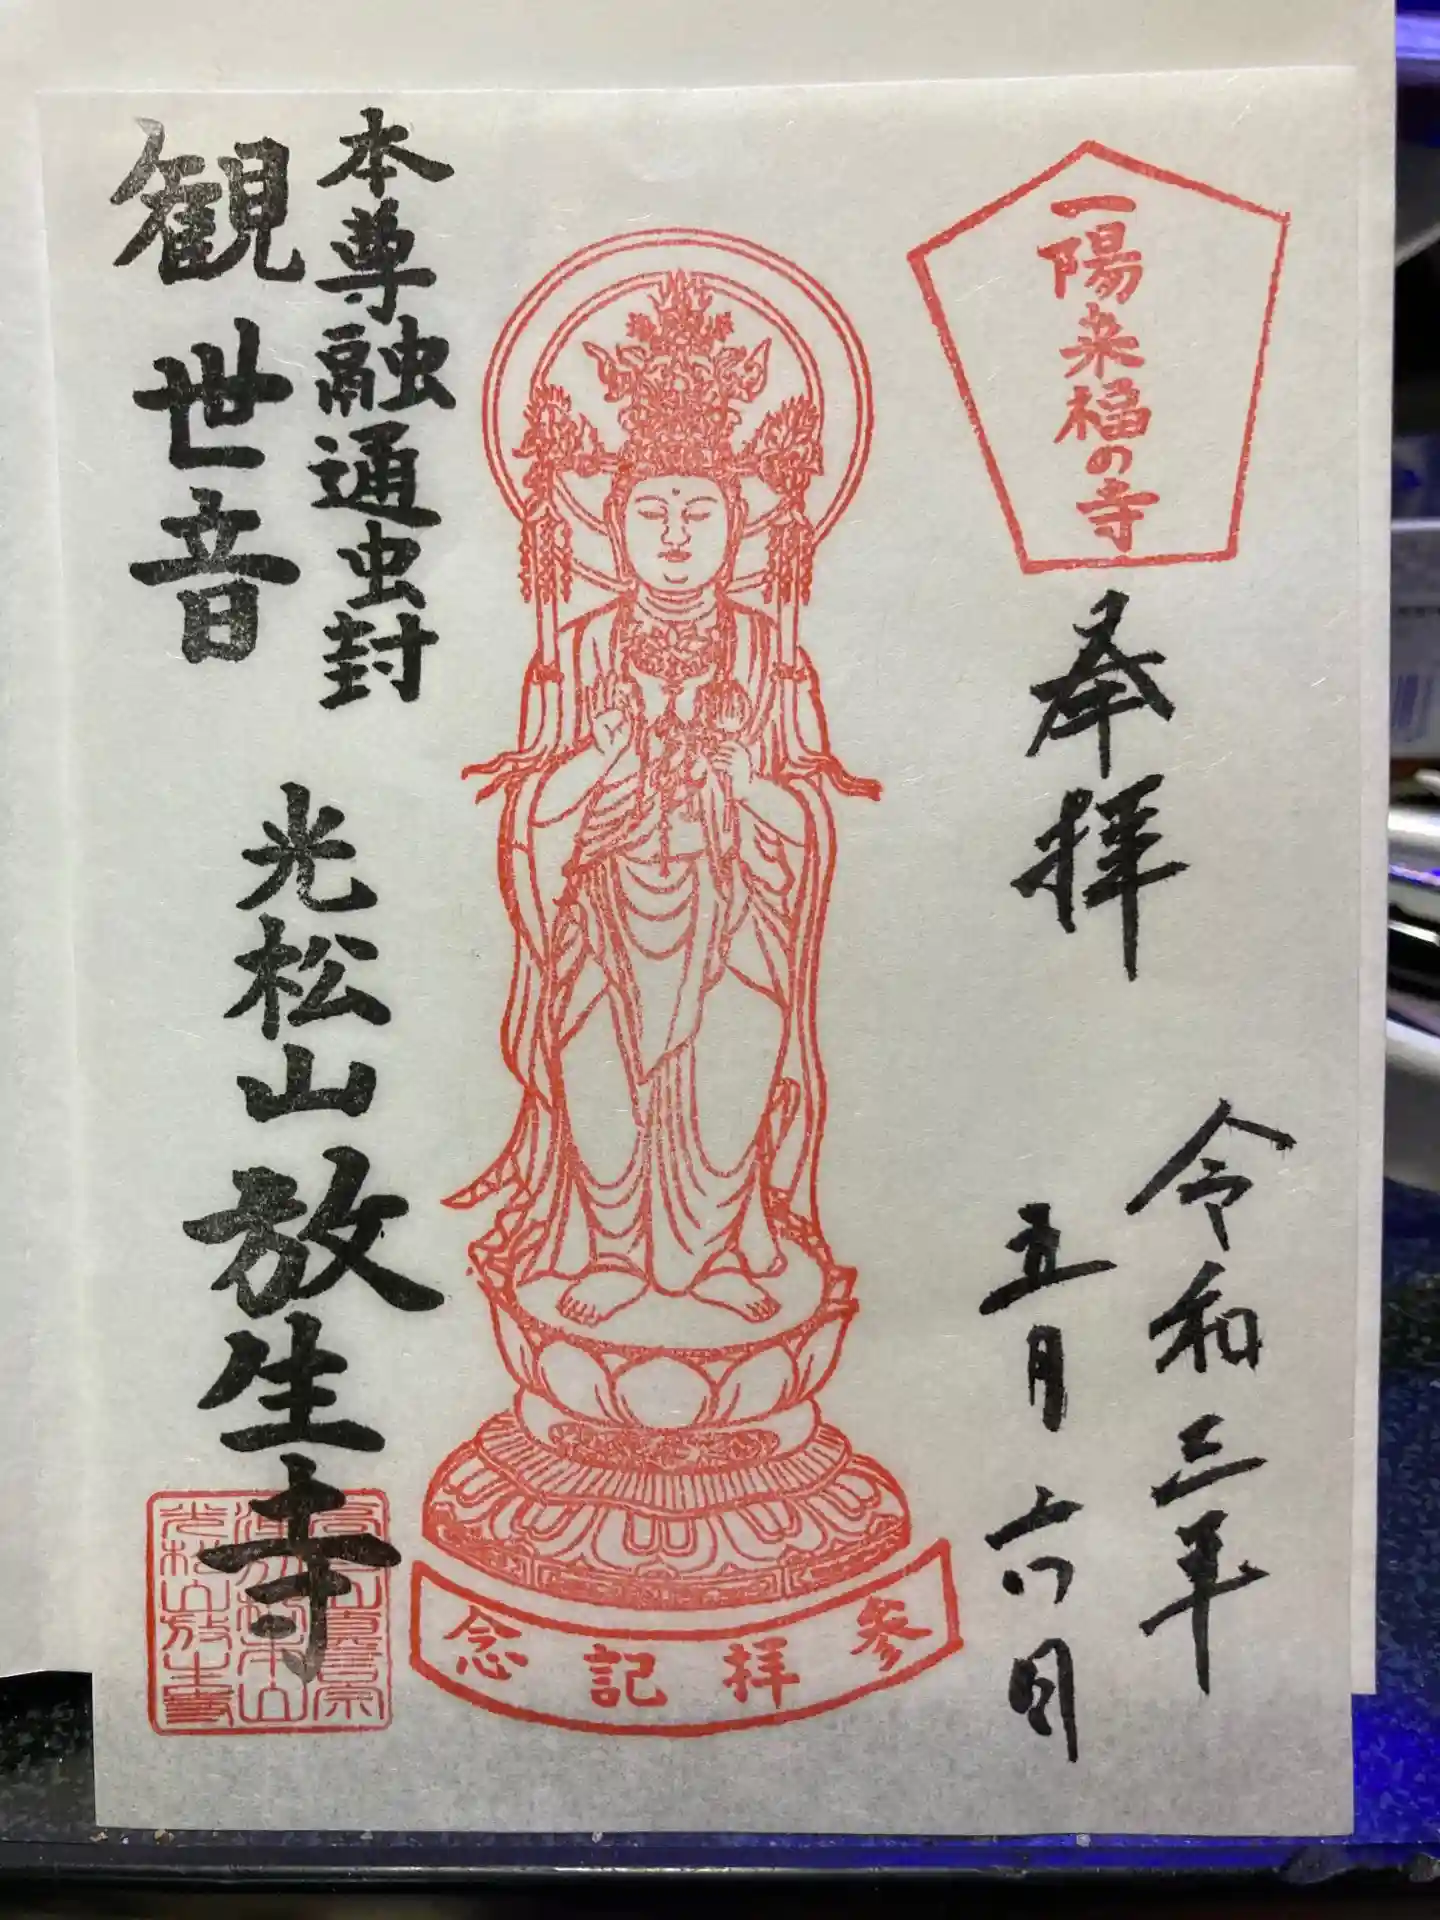 一陽来福の寺
奉拝
令和三年
五月六日
本尊融通虫封
観世音
光松山放生寺
参拝記念
光松山放生寺